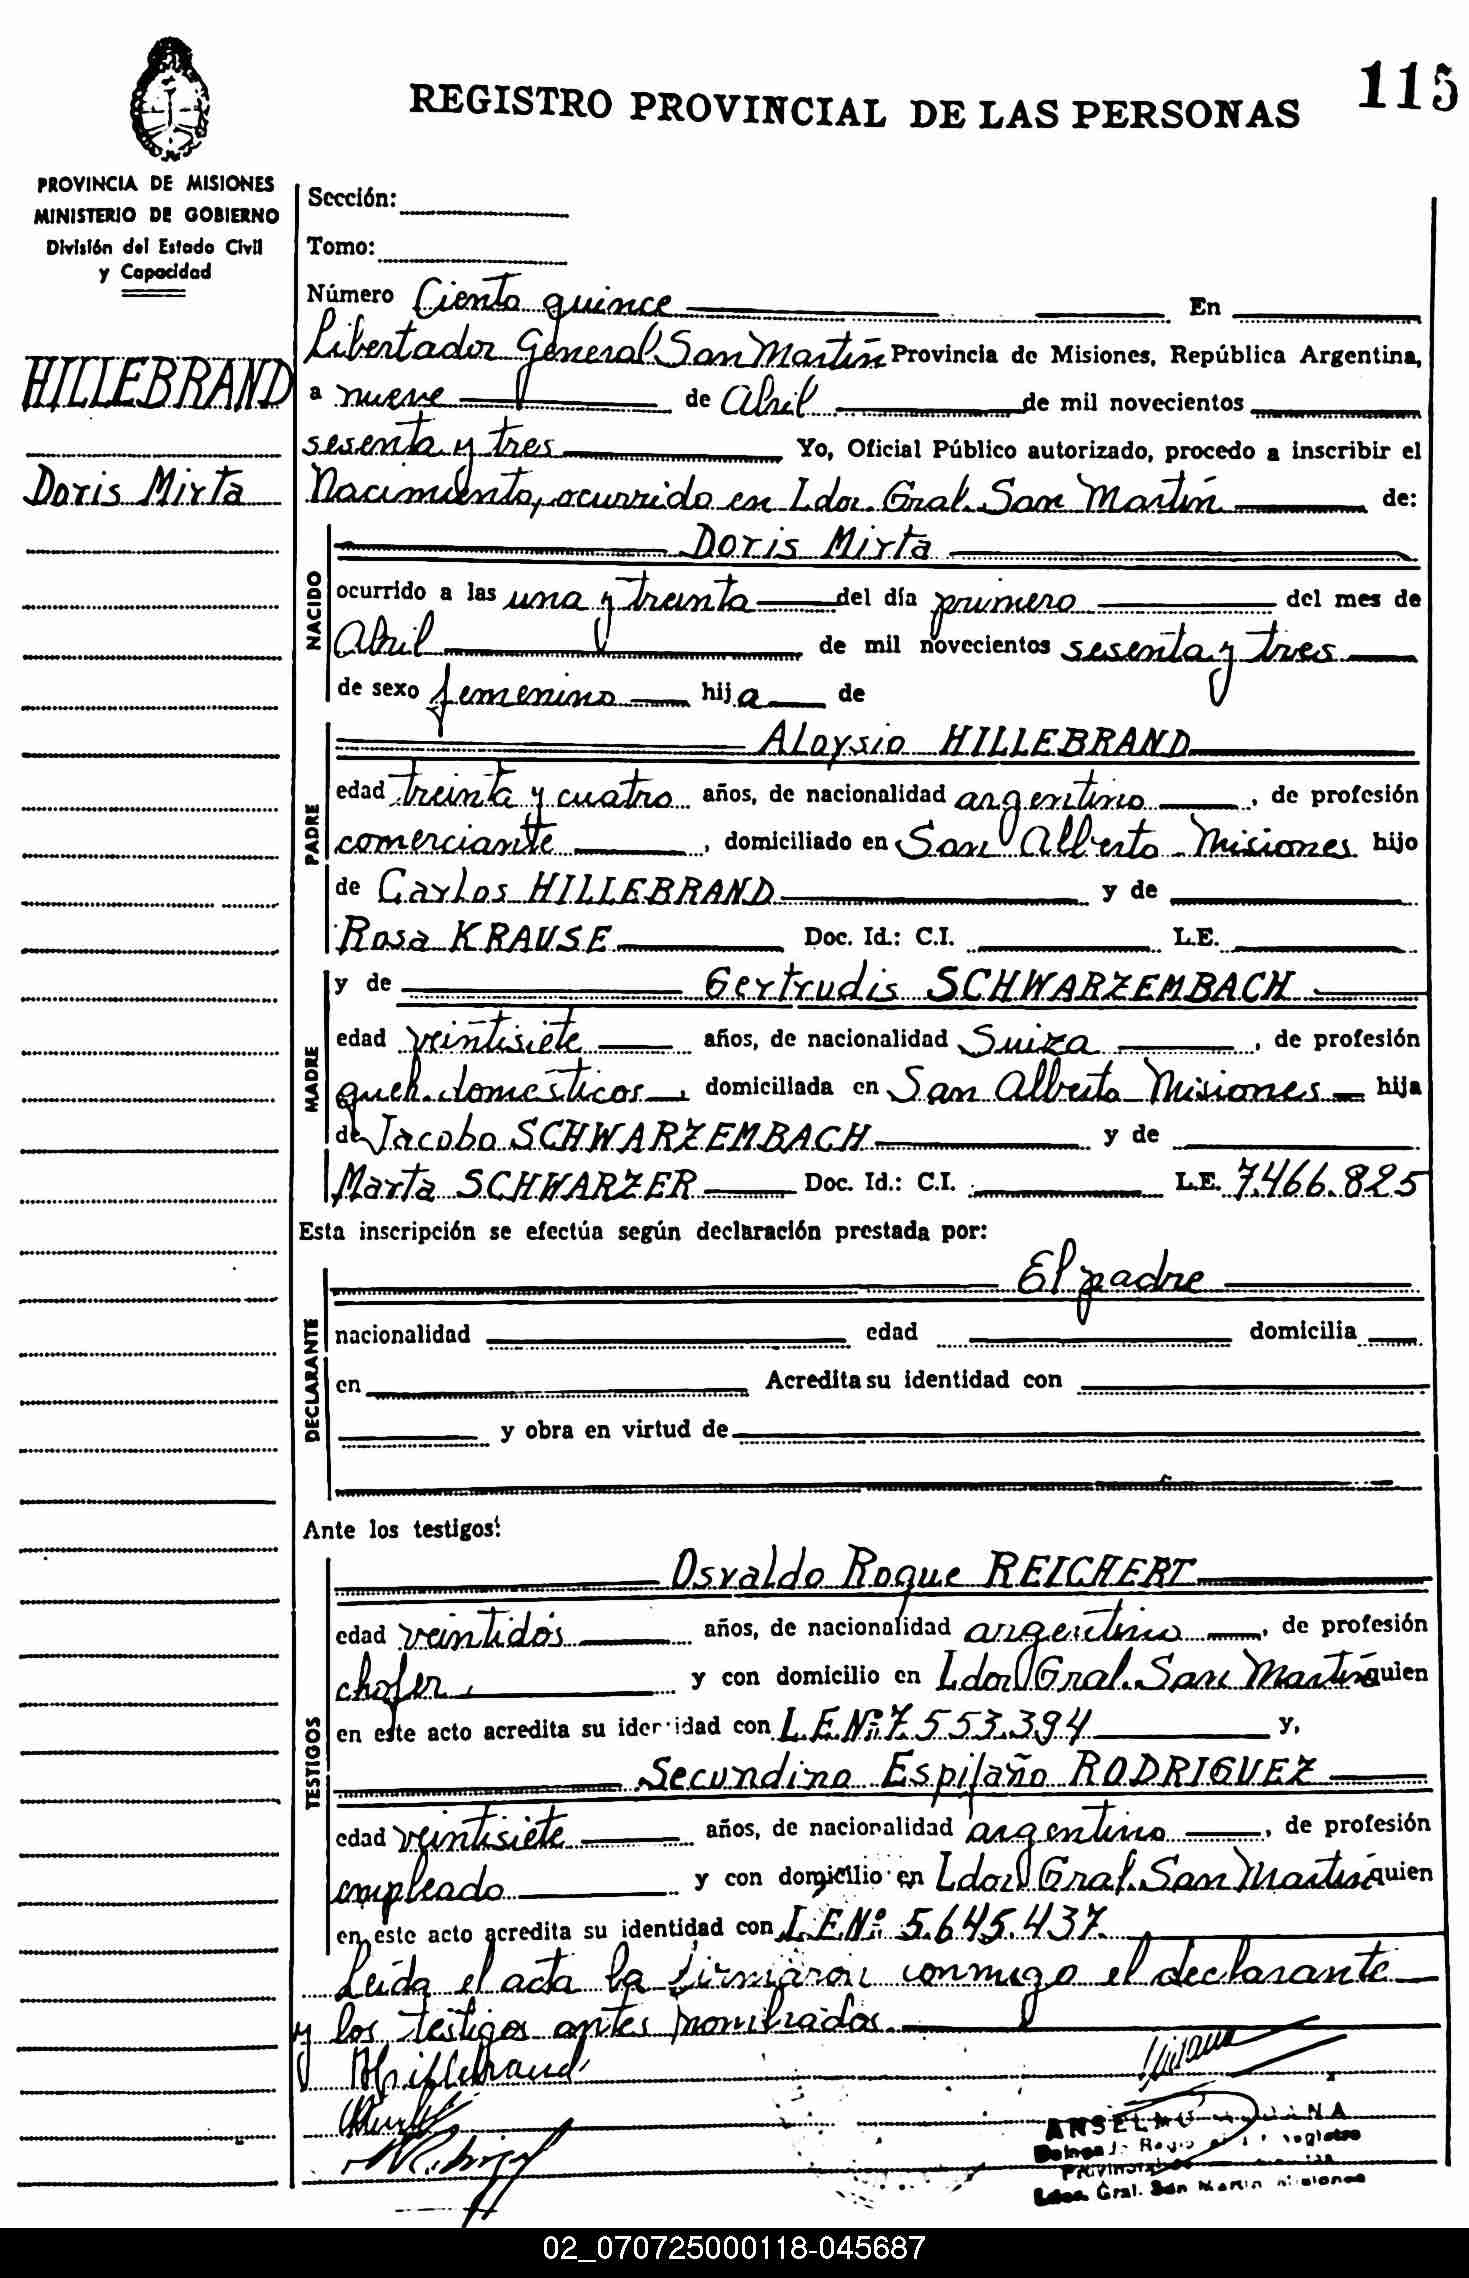 115
REGISTRO PROVINCIAL DE LAS PERSONAS
PROVINCIA DE MISIONES
MINISTERIO DE GOBIERNO
División del Estado Civil
y Capacidad
HILLEBRAND
Doris Mirta
Sección:
Tomo:
Número Ciento quince En
Libertador General San Martín Provincia de Misiones, República Argentina,
a nueve de Abril de mil novecientos
sesenta y tres Yo, Oficial Público autorizado, procedo a inscribir el
Nacimiento, ocurrido en Ldor. Gral. San Martín de:
NACIDO
Doris Mirta
ocurrido a las una y treinta del día primero del mes de
Abril de mil novecientos sesenta y tres
de sexo femenino hija de
PADRE
Aloysio HILLEBRAND
edad treinta y cuatro años, de nacionalidad argentino, de profesión
comerciante, domiciliado en San Alberto Misiones hijo
de Carlos HILLEBRAND y de
Rosa KRAUSE Doc. Id.: C.I. L.E.
MADRE
y de Gertrudis SCHWARZEMBACH
edad veintisiete años, de nacionalidad Suiza, de profesión
queh. domésticos, domiciliada en San Alberto Misiones hija
de Jacobo SCHWARZEMBACH y de
Marta SCHWARZER Doc. Id.: C.I. L.E. 7.466.825
Esta inscripción se efectúa según declaración prestada por:
DECLARANTE
El padre
nacionalidad edad domicilia
en Acredita su identidad con
y obra en virtud de
Ante los testigos:
TESTIGOS
Osvaldo Roque REICHERT
edad veintidós años, de nacionalidad argentino, de profesión
chofer, y con domicilio en Ldor Gral. San Martín quien
en este acto acredita su identidad con L.E.Nº: 7.553.394 y,
Secundino Espifaño RODRIGUEZ
edad veintisiete años, de nacionalidad argentino, de profesión
empleado y con domicilio en Ldor Gral. San Martín quien
en este acto acredita su identidad con L.E.Nº: 5.645.437.
Leída el acta la firmaron conmigo el declarante
y los testigos antes nombrados.
Hillebrand
ANSELMO
Provincia
Ldor. Gral. San Martín Misiones
02_070725000118-045687